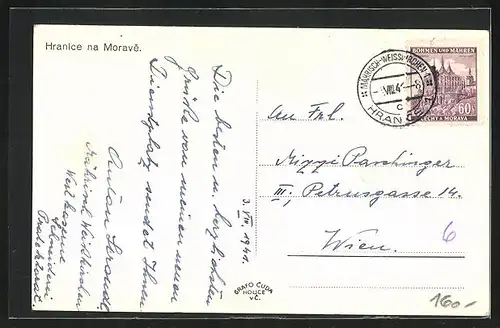 Hranice na Moravě.
Die besten u. herzlichsten
Grüße von meinem neuen
Dienstplatz sendet Ihnen
Anton
Mährisch Weißkirchen
Protektorat.
3. VII. 1941.
GRAFO ČUDA
HOLICE
v Č.
MÄHRISCH-WEISSKIRCHEN
HRANICE
c
BÖHMEN UND MÄHREN
ČECHY A MORAVA
60
An Frl.
Mizzi Parchinger
III, Petrusgasse 14.
Wien.
6
160.-